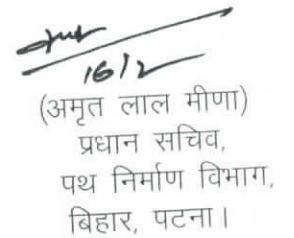 16/2
(अमृत लाल मीणा)
प्रधान सचिव,
पथ निर्माण विभाग,
बिहार, पटना।